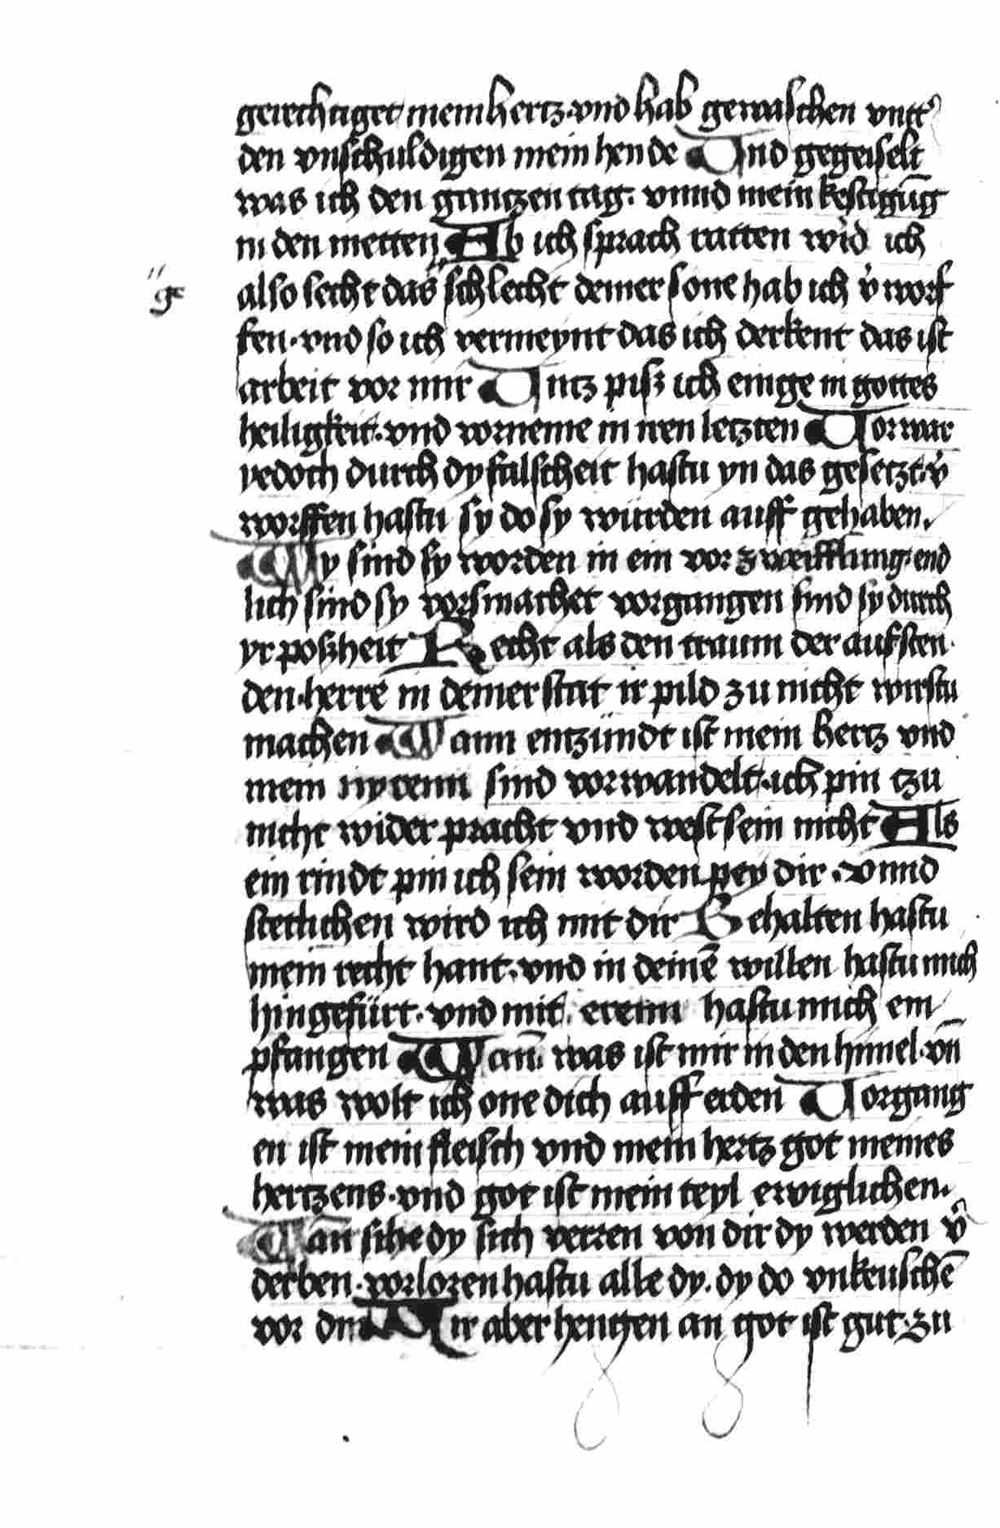 gerechtiget mein hertz · vnd hab gewaschen vntt᾽
den vnschuldigen mein hende Und gegeiselt
was ich den gantzen tag · vnnd mein kestigūg
in den metten Ab ich sprach ratten wid ich
ge
also secht das schlecht deiner sone hab ich v᾽worf
fen · vnd so ich vermeynt das ich derkent das ist
arbeit vor mir Untz pisz ich einge in gottes
heiligkeit · vnd vorneme in iren letzten Vorwar
yedoch durch dy falscheit hastu yn das gesetzt · v᾽
worffen hastu sy do sy wurden auff gehaben.
Wy sind sy worden in ein vorzweifflung · end
lich sind sy vorsmachet vorgangen sind sy durch
yr poszheit Recht als den traum der aufsten
den · herre in deiner stat ir pild zu nicht wirstu
machen Wann entzündt ist mein hertz vnd
mein nyrenn sind vorwandelt · ich pin tzu
nicht widerpracht vnd west sein nicht Als
ein rindt pin ich sein worden pey dir · vnnd
stetlichen wird ich mit dir Gehalten hastu
mein recht hant · vnd in deinē willen hastu mich
hingefürt · vnd mit erenn hastu mich em
pfangen Wañ was ist mir in den himel · vn̄
was wolt ich one dich auff erden Vorgang
en ist mein fleisch vnd mein hertz got meines
hertzens · vnd got ist mein teyl ewiglichen.
Wan̄ sihe dy sich verren von dir dy werden v᾽
derben · vorloren hastu alle dy · dy do vnkeuschē
vor dir Mir aber hengen an got ist gut · zu